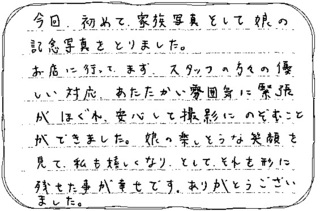 今回、初めて、家族写真として娘の
記念写真をとりました。
お店に行って、まず、スタッフの方々の優
しい対応、あたたかい雰囲気に緊張
がほぐれ、安心して撮影にのぞむこと
ができました。娘の楽しそうな笑顔を
見て、私も嬉しくなり、そして、それを形に
残せた事が幸せです。ありがとうござい
ました。